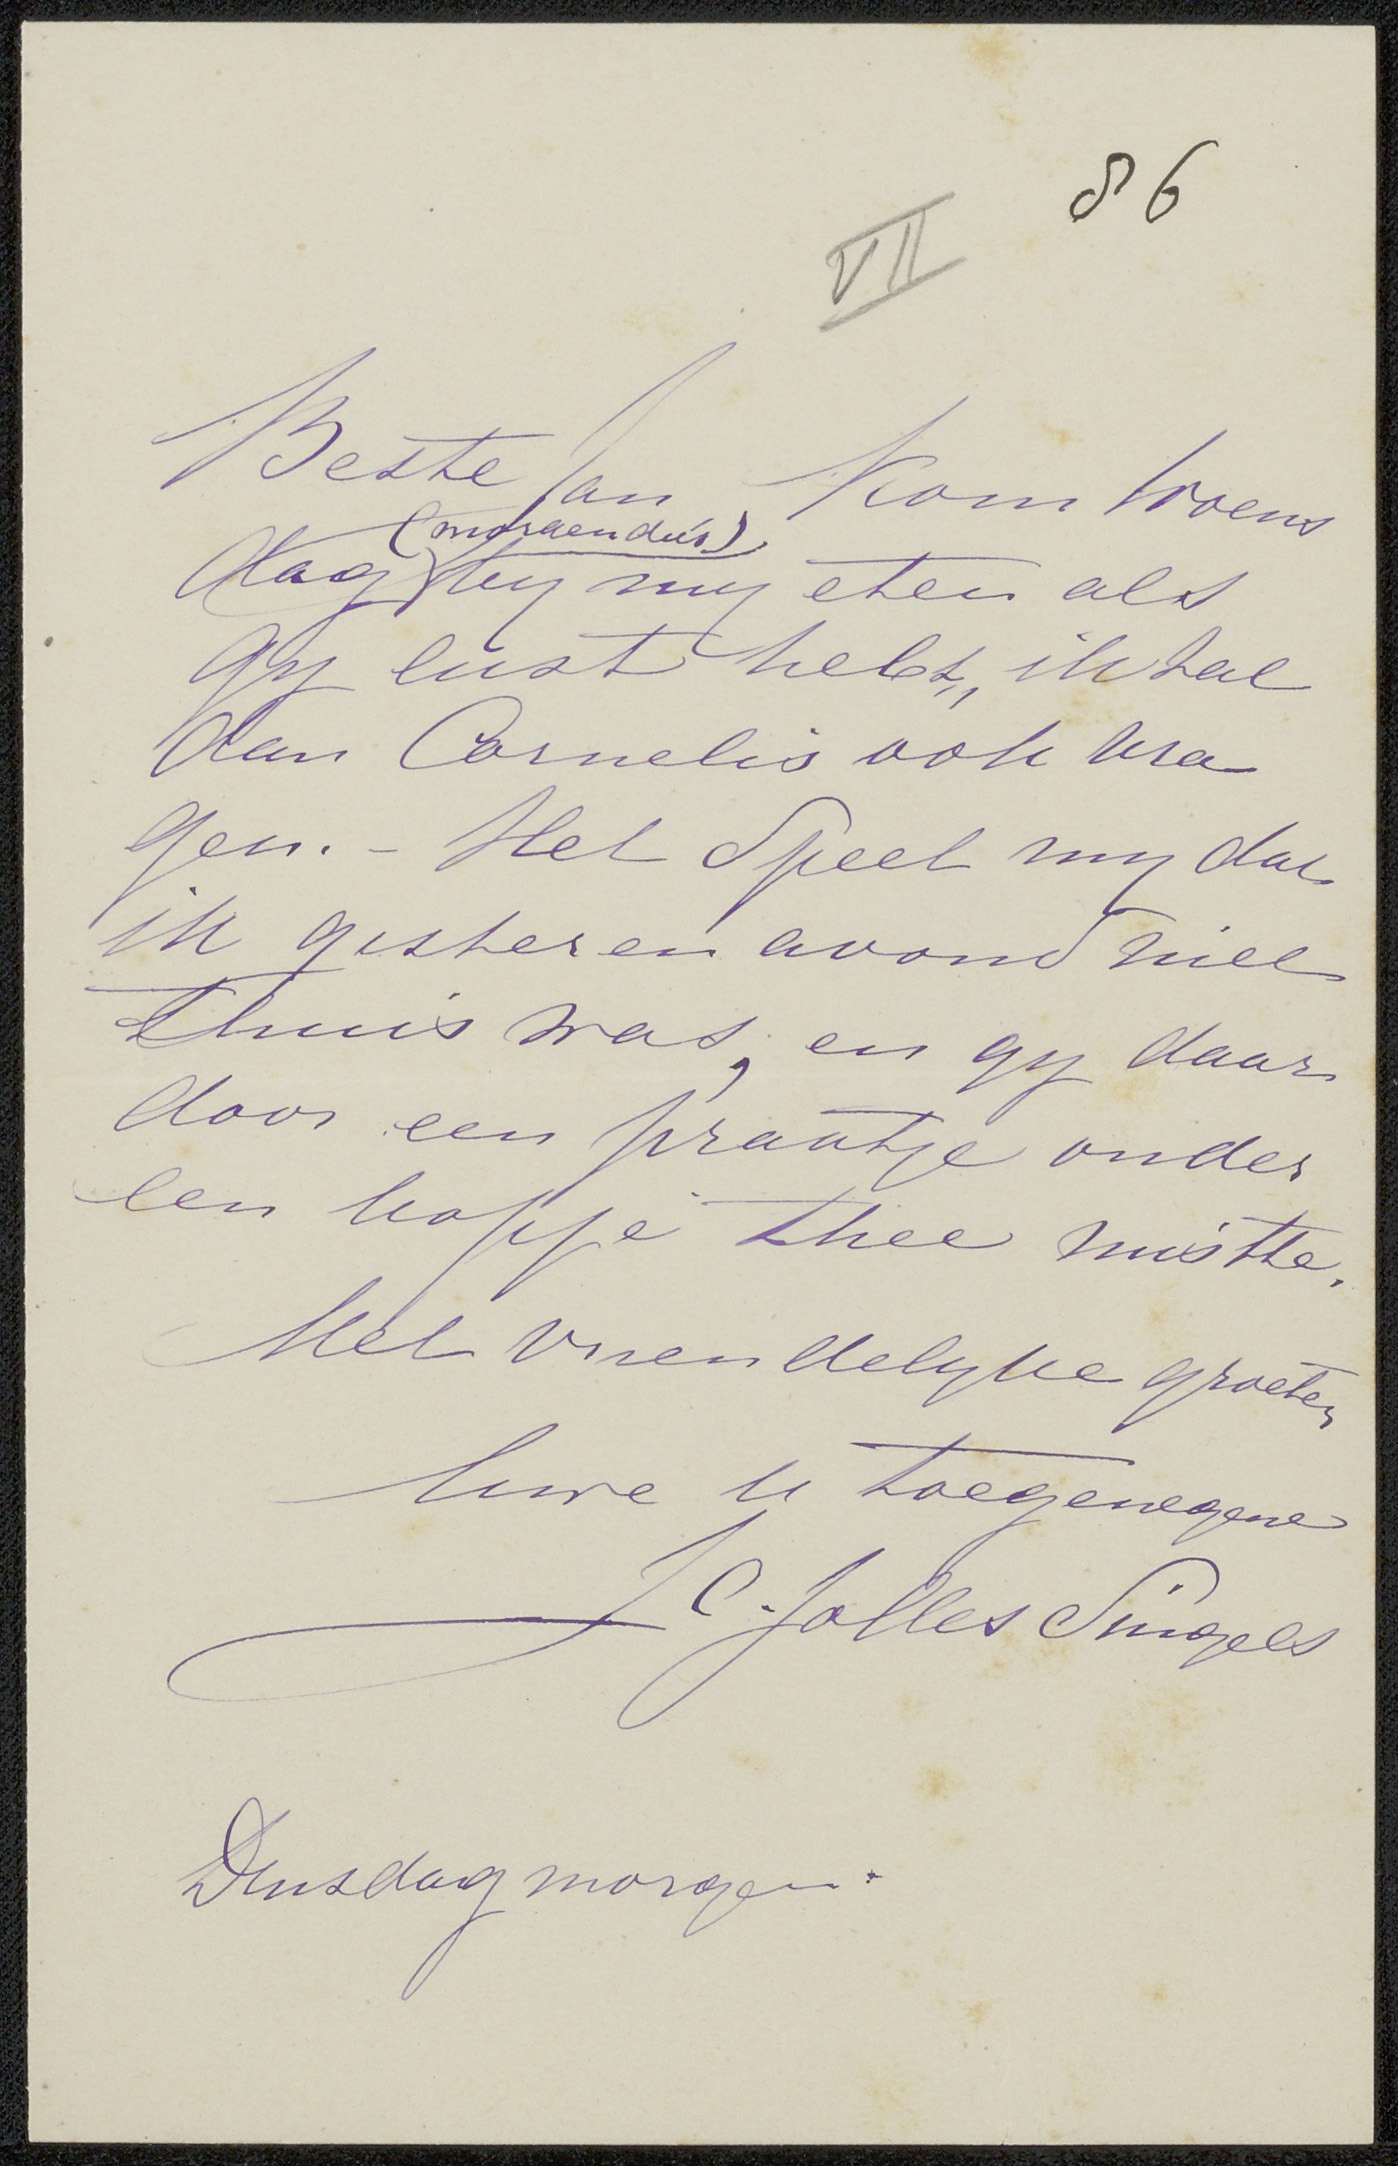 86
VII
Beste Jan Kom Woens
(morgen dus)
dag by my eten als
gy lust hebt, ik zal
dan Cornelis ook vra
gen. - Het Speet my dat
ik gisteren avond niet
thuis was, en gy daar
door een praatje onder
een kopje thee mistte.
Met vriendelyke groeten
Uwe U toegenegene
J C. Jolles Singels
Dinsdag morgen.